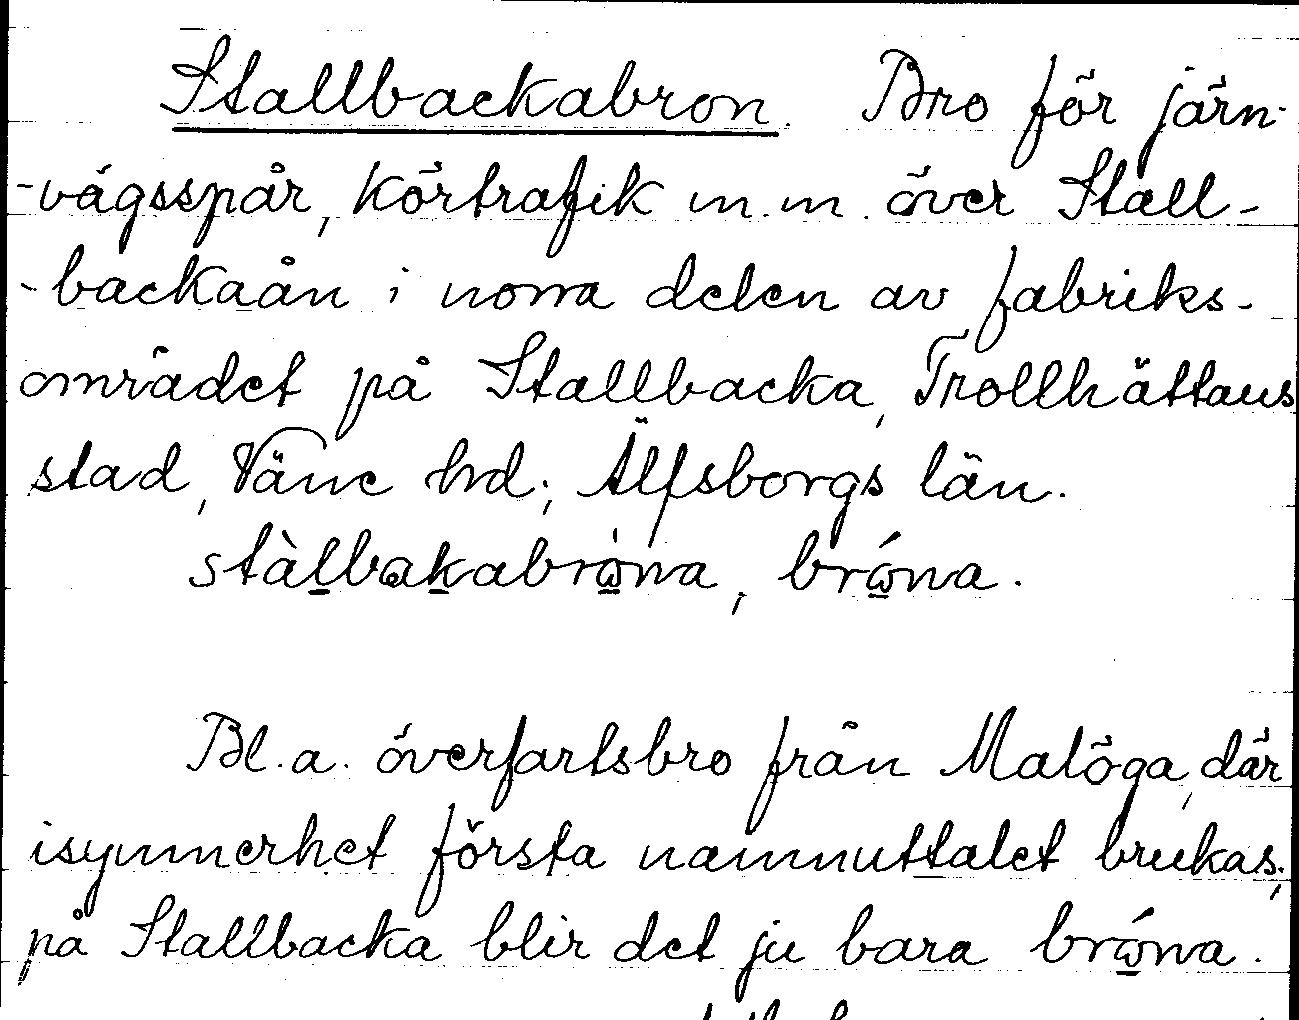 Stallbackabron. Bro för järn-
-vägsspår, körtrafik m.m. över Stall-
-backaån i norra delen av fabriks-
området på Stallbacka, Trollhättans
stad, Väne hd; Älfsborgs län.
stàlbakabrὼna, brώna.
Bl.a. överfartsbro från Malöga, där
isynnerhet första namnuttalet brukas;
på Stallbacka blir det ju bara brώna.